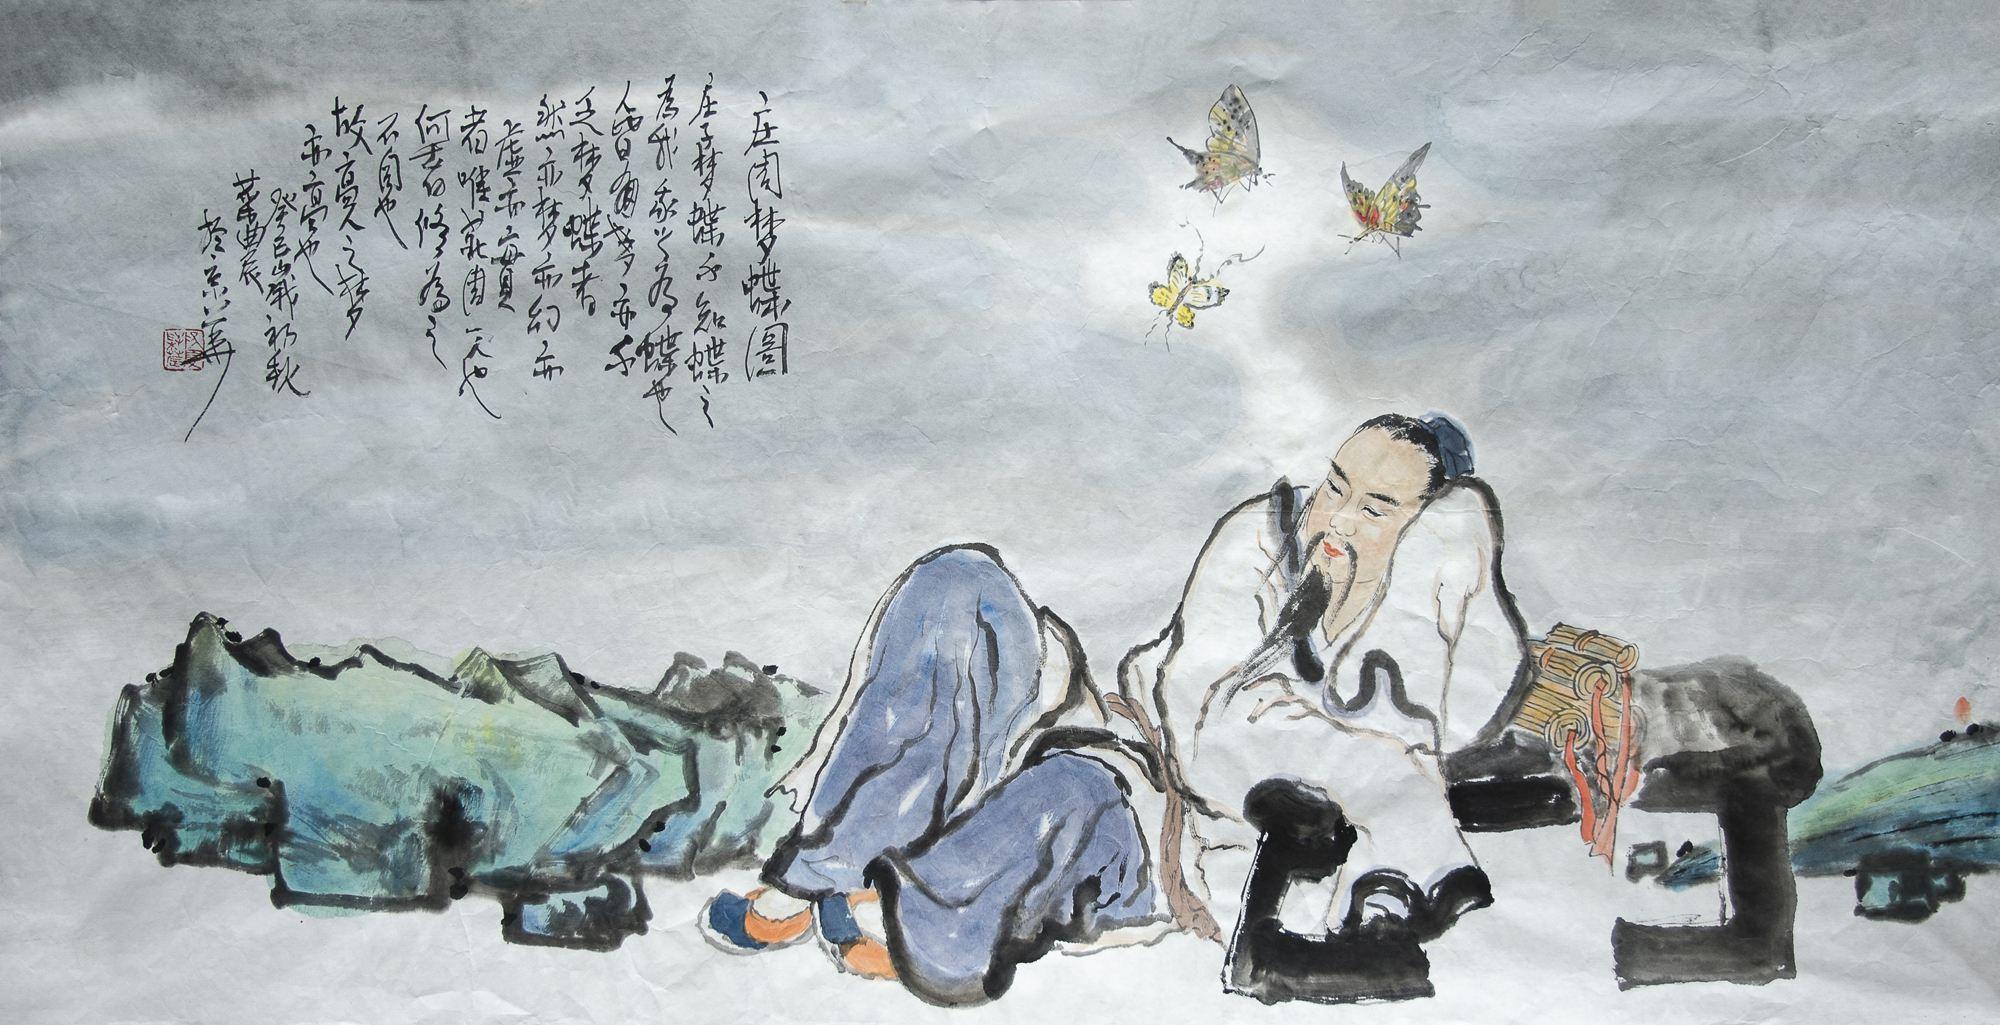 庄周梦蝶圖
庄子梦蝶不知蝶之
為我我之為蝶也
人皆有梦亦不
乏梦蝶者
然亦梦亦幻亦
虚亦實
者唯莊周一人也
何修為之
不同也
故高人之梦
亦高也
癸巳歲初秋
葉曲辰
於京華